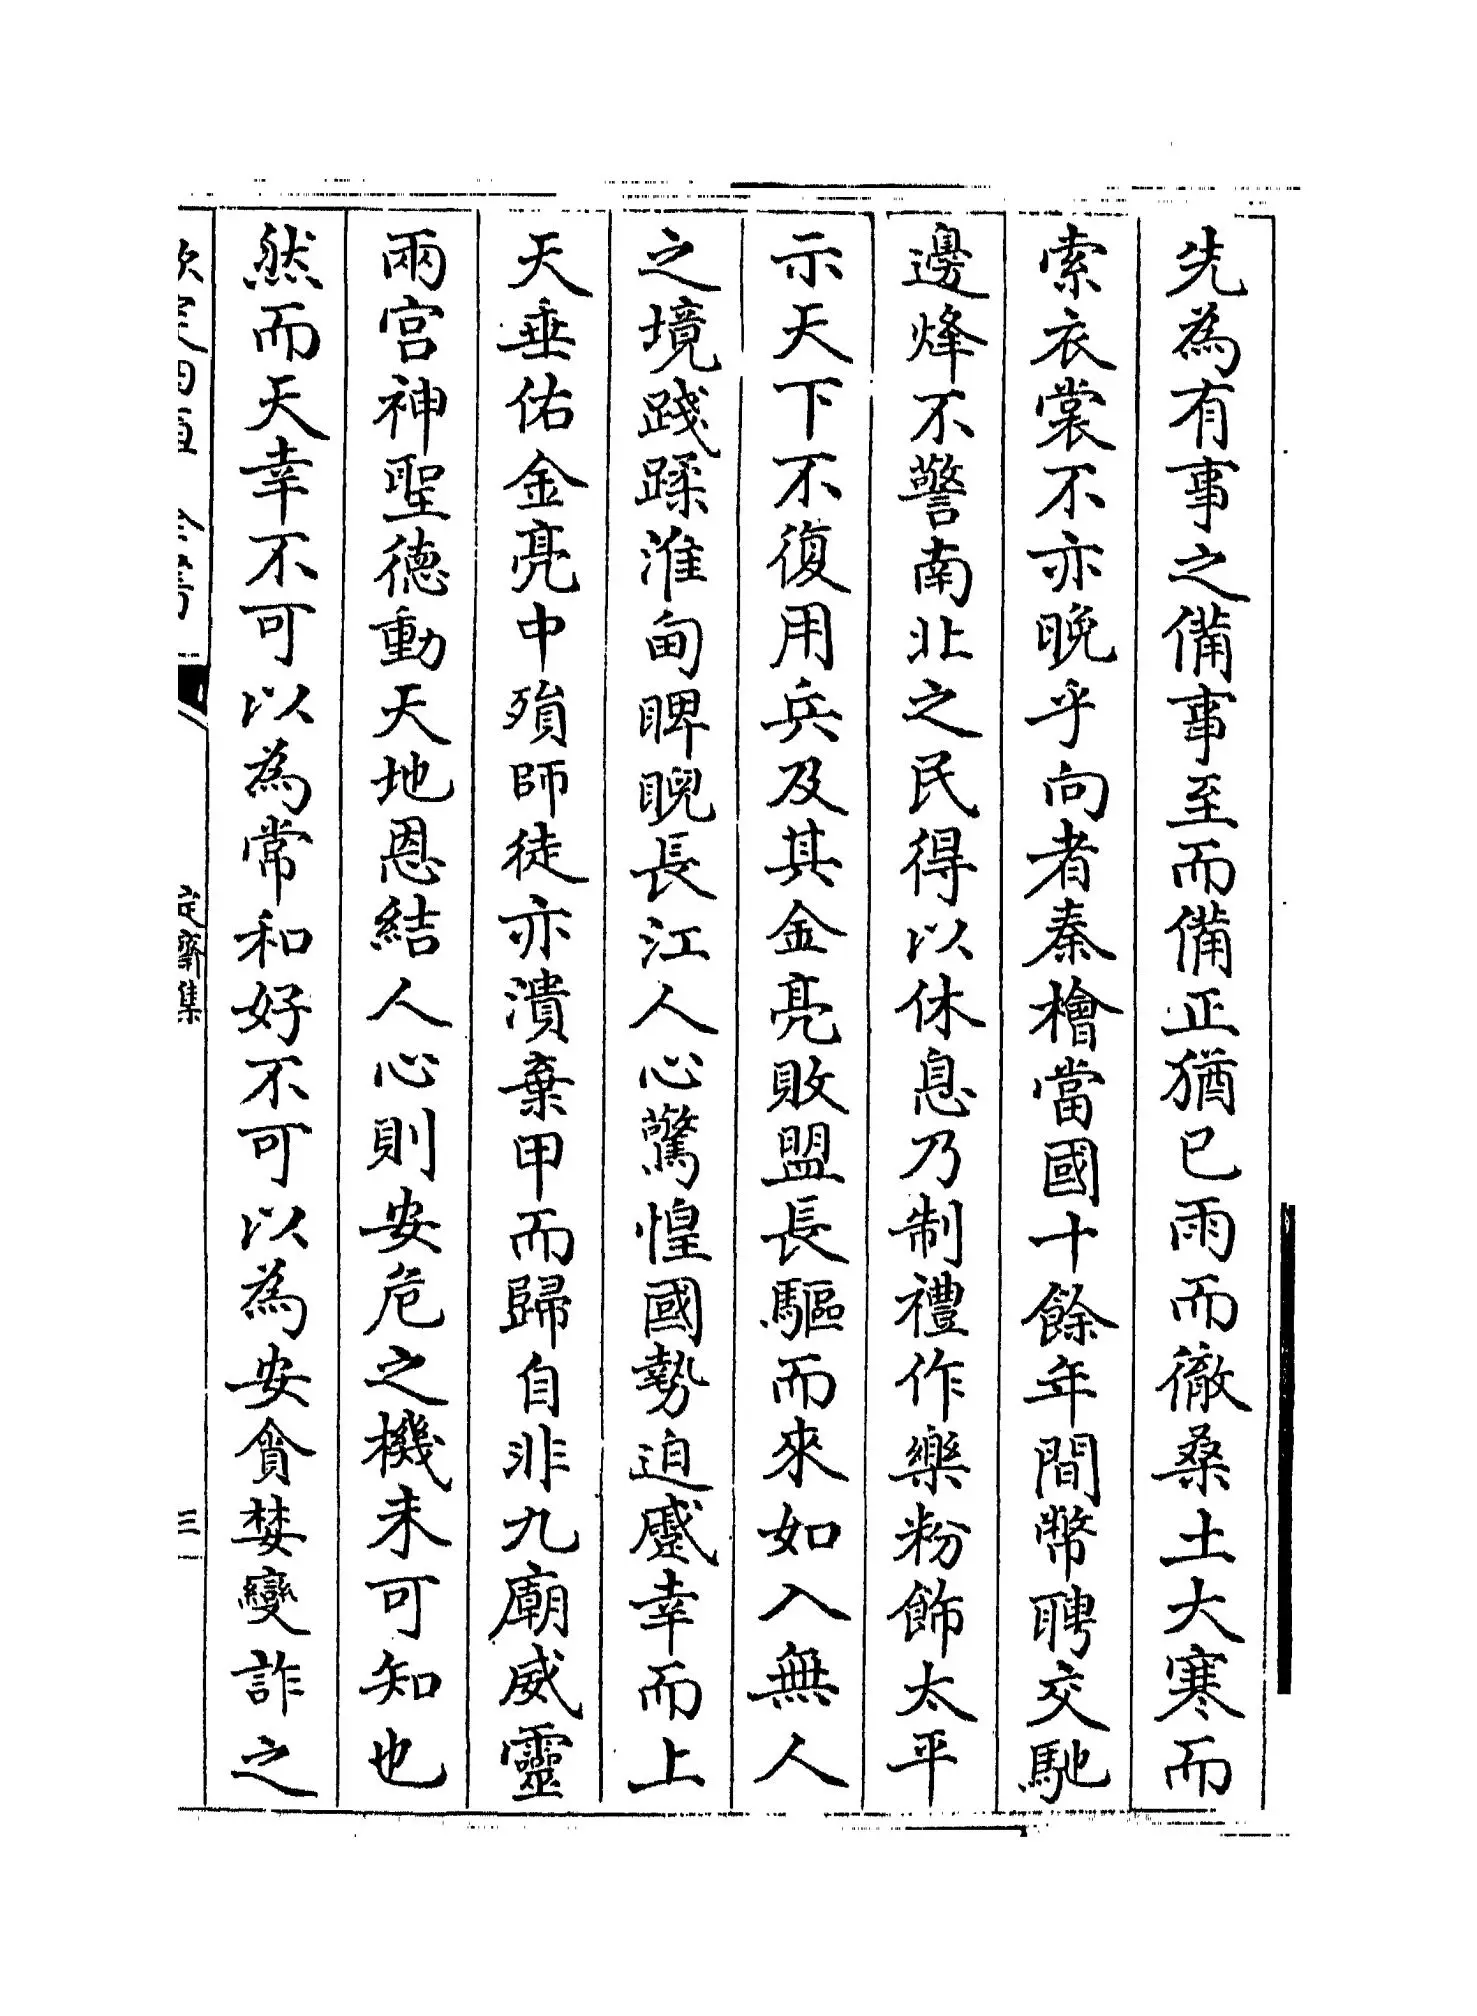 先為有事之備事至而備正猶已雨而徹桑土大寒而
索衣裳不亦晚乎向者秦檜當國十餘年間幣聘交馳
邊烽不警南北之民得以休息乃制禮作樂粉飾太平
示天下不復用兵及其金亮敗盟長驅而來如入無人
之境踐蹂淮甸睥睨長江人心驚惶國勢迫蹙幸而上
天垂佑金亮中殞師徒亦潰棄甲而歸自非九廟威靈
兩宫神聖德動天地恩結人心則安危之機未可知也
然而天幸不可以為常和好不可以為安貪婪變詐之
欽定四庫全書
定齋集
三